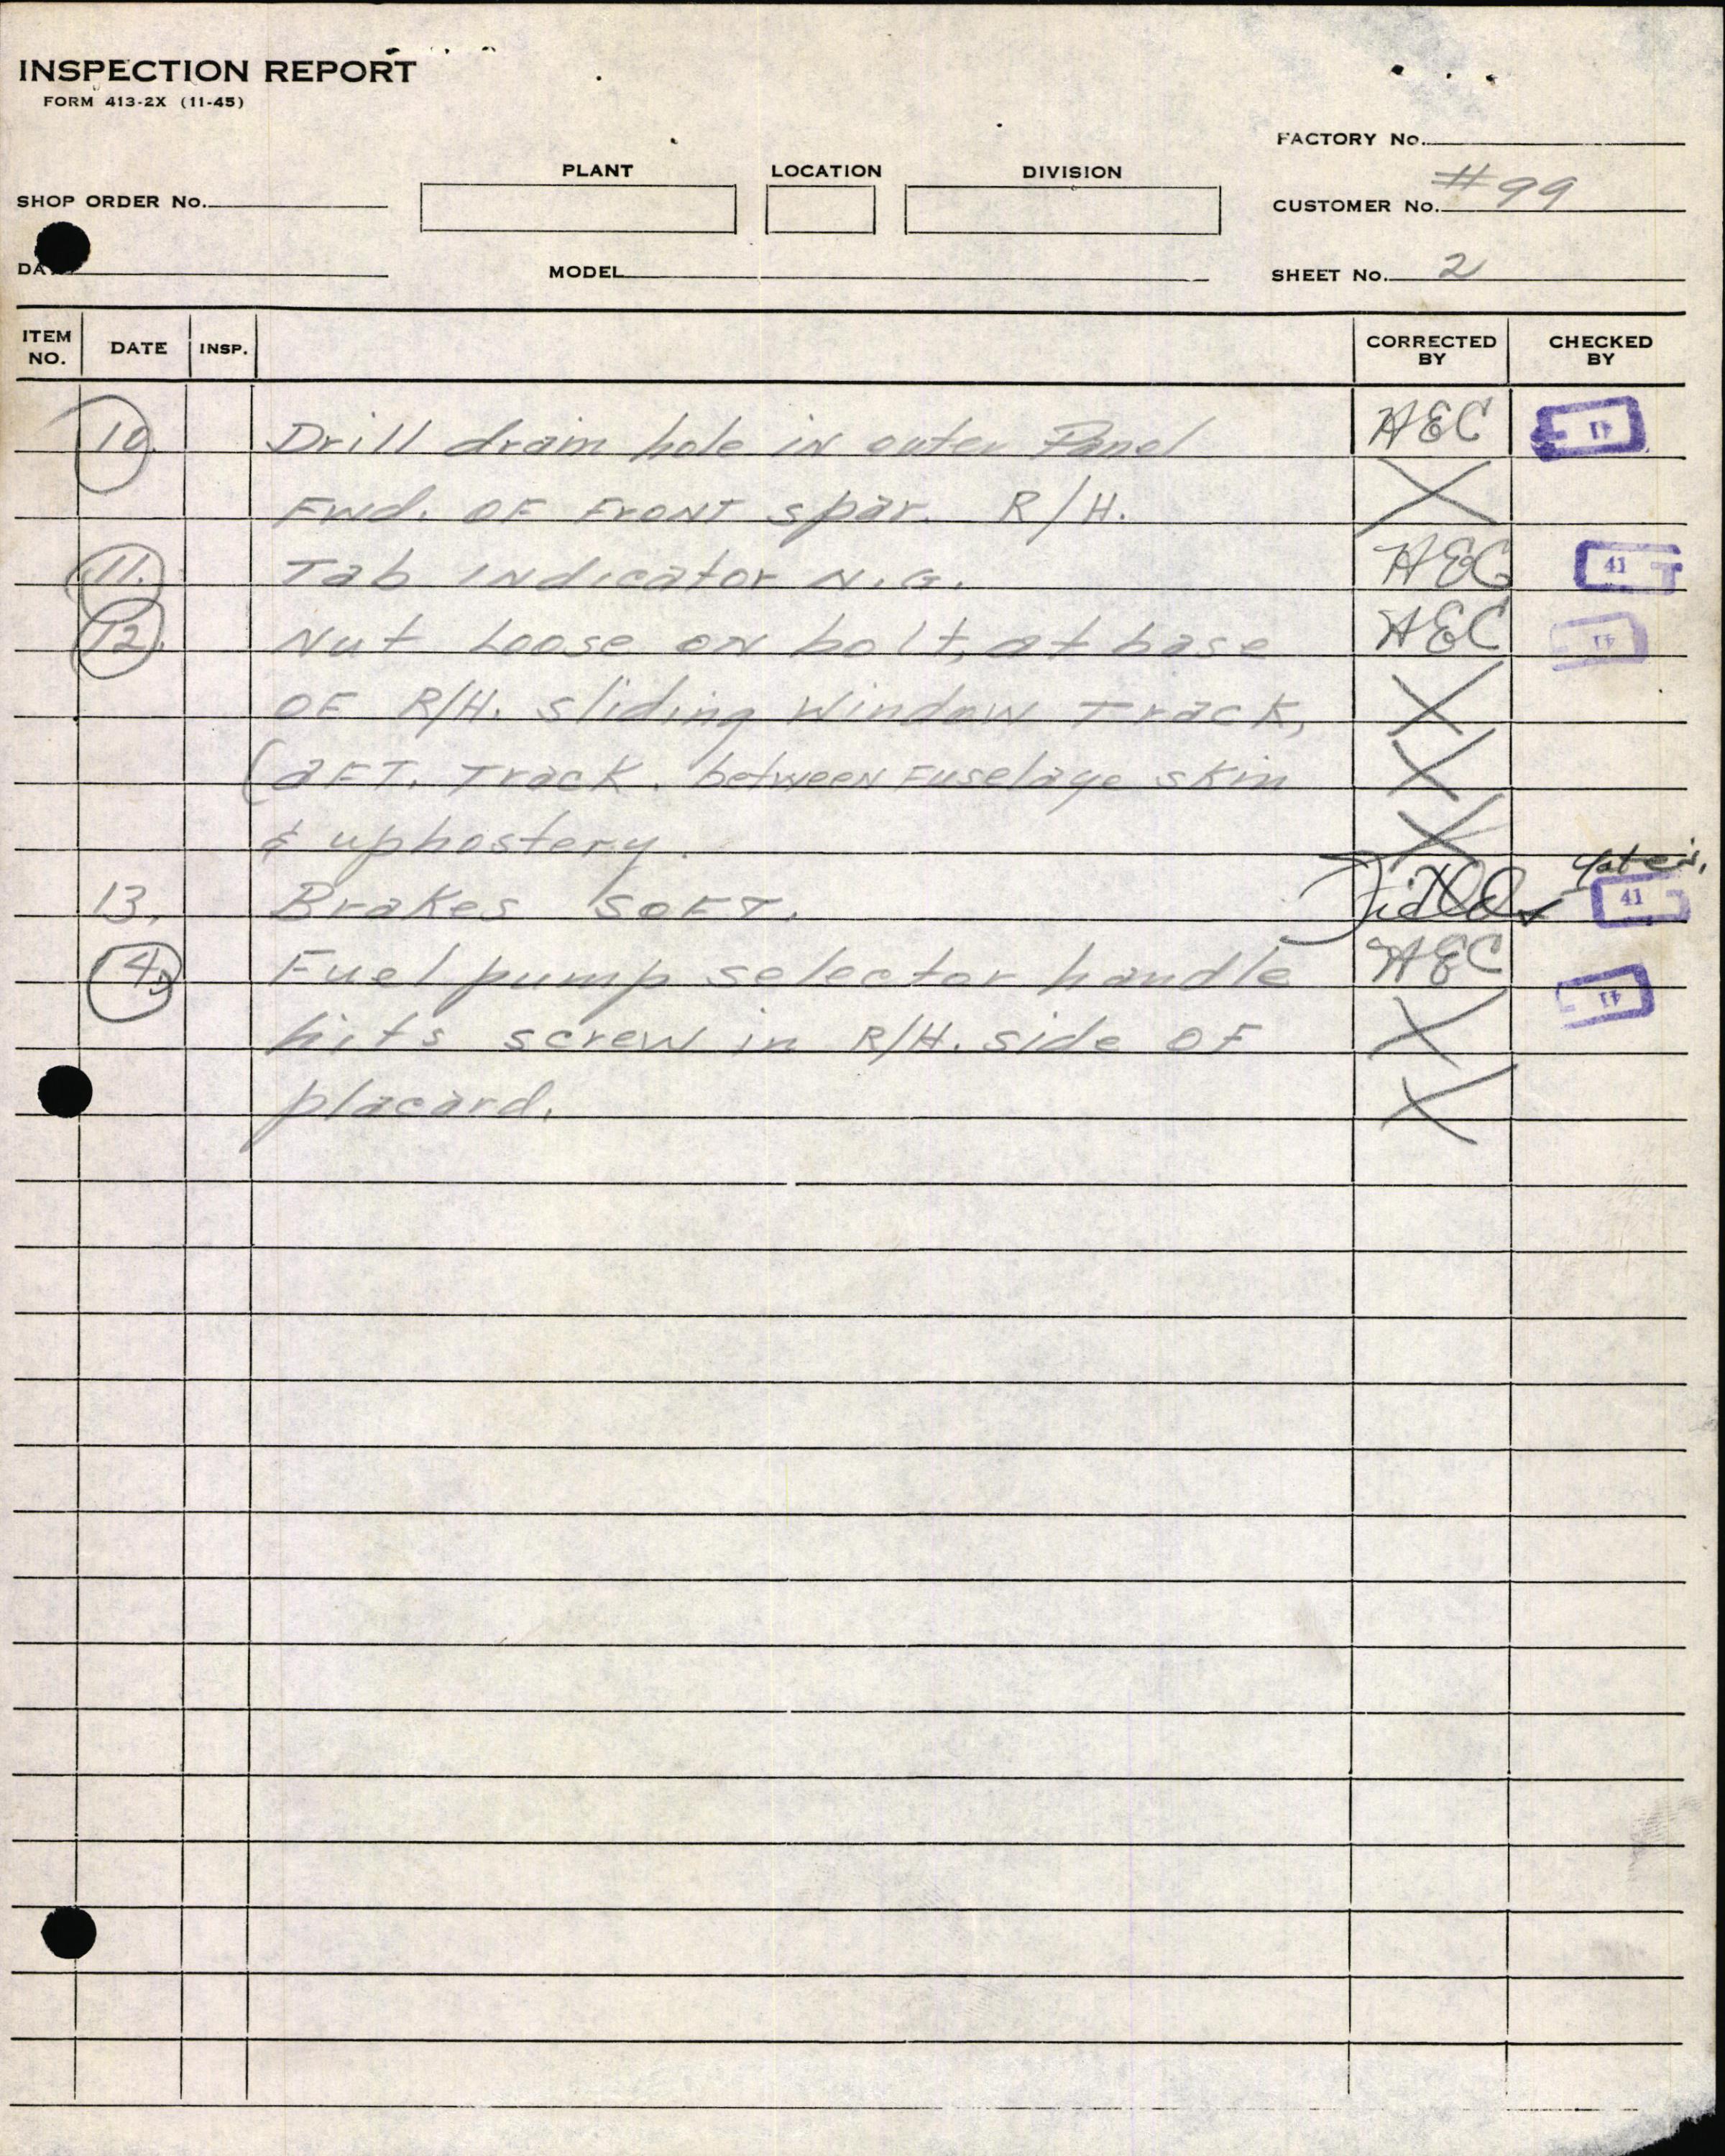 INSPECTION REPORT
FORM 413-2X (11-45)
FACTORY No.
PLANT LOCATION DIVISION
SHOP ORDER No.
CUSTOMER No. #99
DA
MODEL
SHEET No. 2
ITEM NO. DATE INSP. CORRECTED BY CHECKED BY
10. Drill drain hole in outer Panel HEC 41
Fwd. OF FRONT spar. R/H. X
11. Tab INdicator N.G. HEC 41
12. Nut Loose ON bolt, at base HEC 41
OF R/H. sliding Window Track, X
(aFT. Track. between Fuselage skin X
& uphostery. X
13. Brakes SOFT. 41
4. Fuel pump selector handle HEC 41
hits screw in R/H. side OF X
placard. X